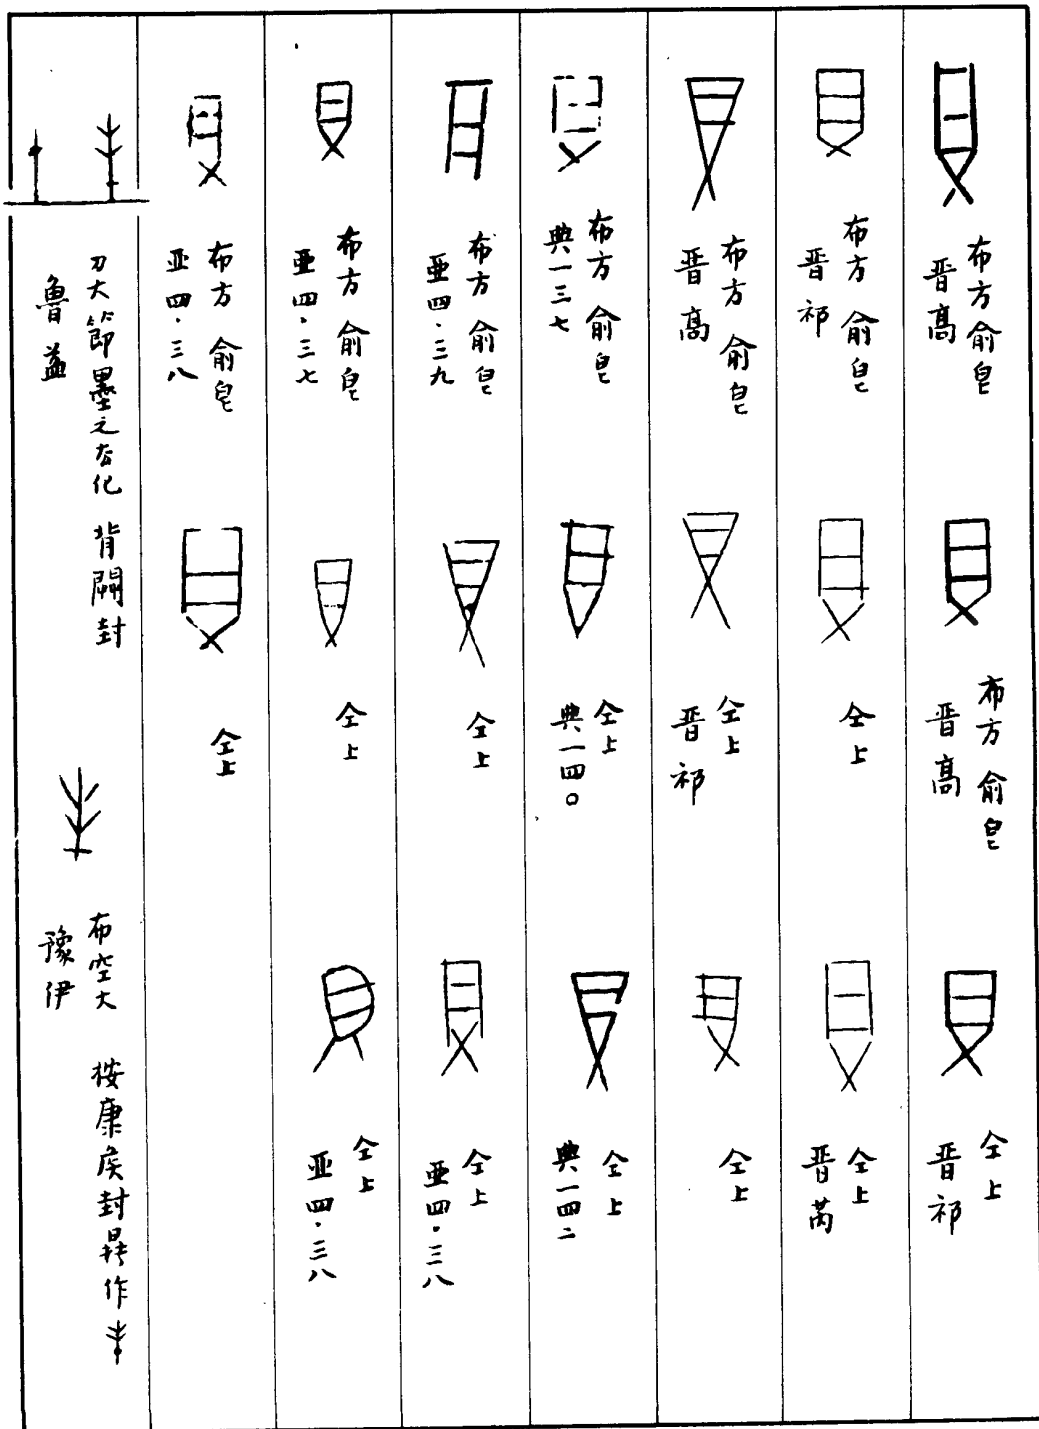 布方俞皀
晋高
布方俞皀
晋高
仝上
晋祁
布方俞皀
晋祁
仝上
仝上
晋芮
布方俞皀
晋高
仝上
晋祁
仝上
布方俞皀
典一三七
仝上
典一四〇
仝上
典一四二
布方俞皀
亚四·三九
仝上
仝上
亚四·三八
布方俞皀
亚四·三七
仝上
仝上
亚四·三八
布方俞皀
亚四·三八
仝上
刀大節墨之厺化 背闢封
魯益
布空大
豫伊
桉康侯封鼑作